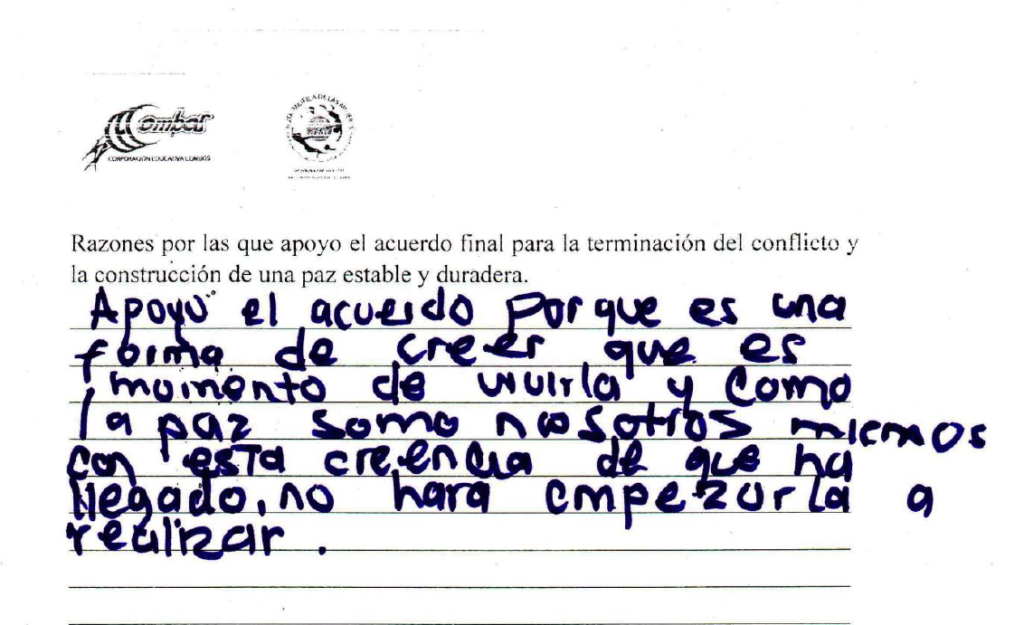 Combos
CORPORACIÓN EDUCATIVA COMBOS
Razones por las que apoyo el acuerdo final para la terminación del conflicto y
la construcción de una paz estable y duradera.
Apoyo el acuerdo porque es una
forma de creer que es
momento de vivirla y como
la paz somo nosotros micmos
con esta creencia de que ha
llegado, no hara empezarla a
realizar.